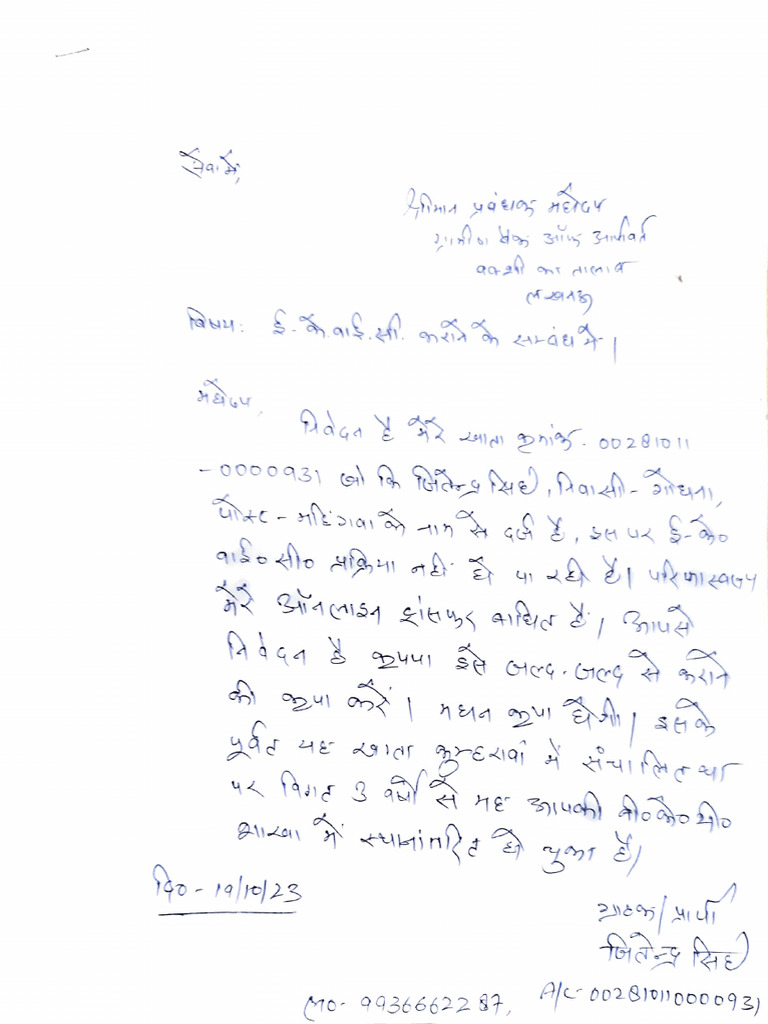 सेवा में,
श्रीमान प्रबंधक महोदय
ग्रामीण बैंक ऑफ आर्यावर्त
बक्शी का तालाब
लखनऊ
विषय: ई.के.वाई.सी. कराने के सम्बंध में।
महोदय,
निवेदन है मेरे खाता क्रमांक- 00281011
-0000931 जो कि जितेन्द्र सिंह, निवासी- गोधना,
पोस्ट- मडिंगवा के नाम से दर्ज है, इस पर ई-के०
वाई० सी० प्रक्रिया नहीं हो पा रही है। परिणामस्वरूप
मेरे ऑनलाइन ट्रांसफर बाधित हैं। आपसे
निवेदन है कृपया इसे जल्द-जल्द से कराने
की कृपा करें। महान कृपा होगी। इसके
पूर्वत यह खाता कुम्हरावां में संचालित था
पर विगत 3 वर्षों से यह आपकी बी०के०टी०
शाखा में स्थानांतरित हो चुका है।
दि०- 19/10/23
ग्राहक/प्रार्थी
जितेन्द्र सिंह
मो०- 9936662287, A/C-002810110000931